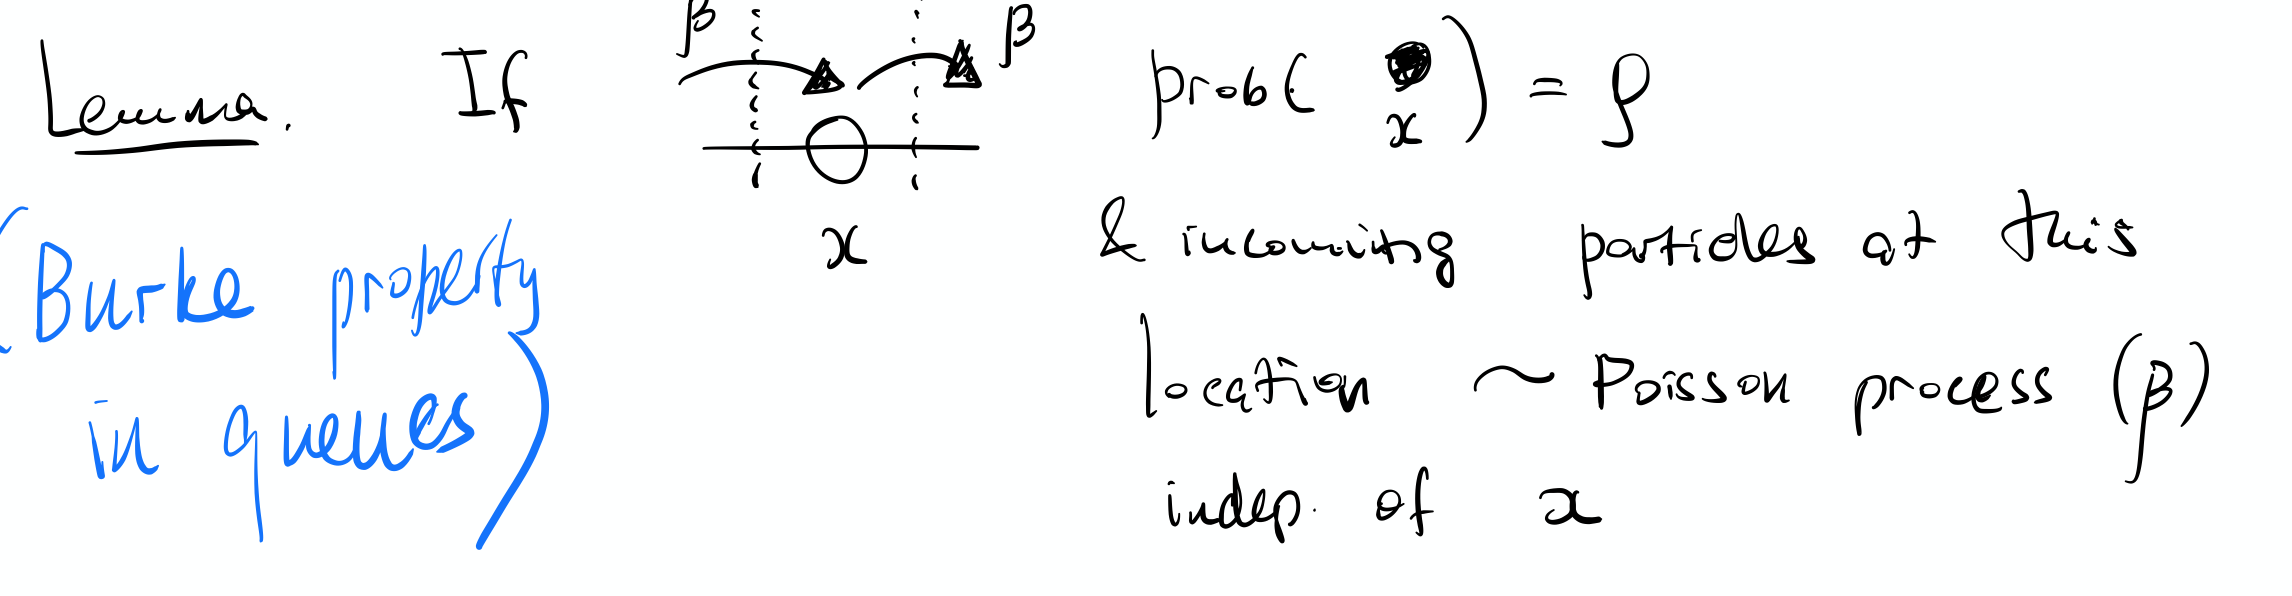 Lemma. If β β prob( x ) = ρ
x & incoming particles at this
location ~ Poisson process (β)
indep. of x
(Burke property
in queues)